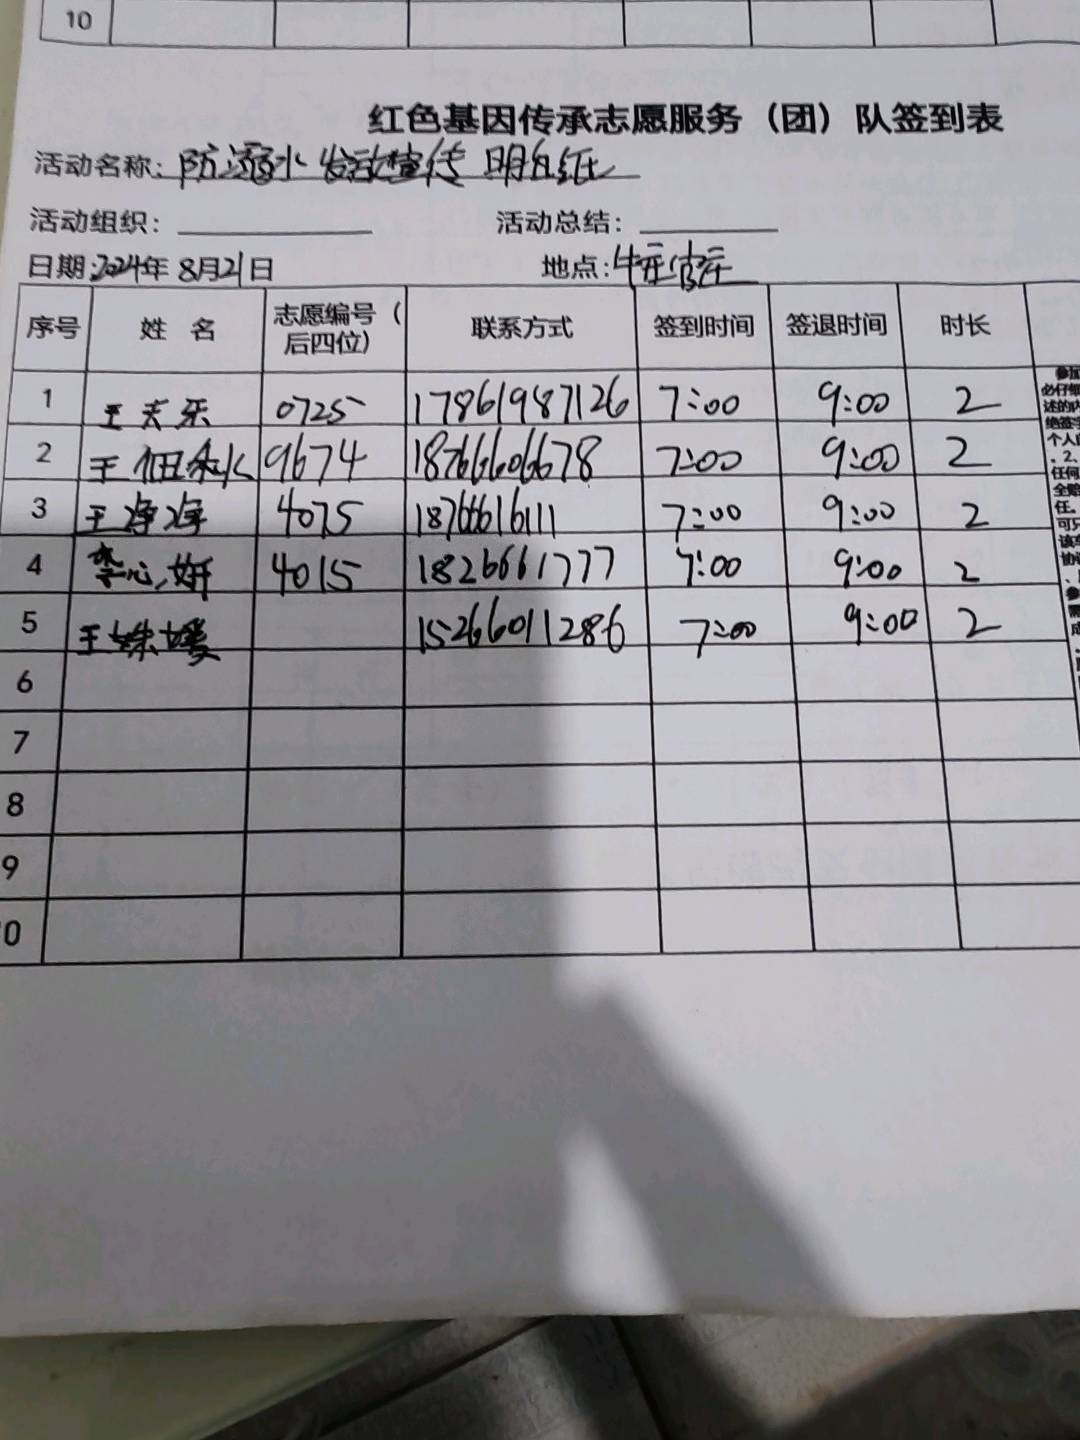 10
红色基因传承志愿服务（团）队签到表
活动名称：防溺水 发放宣传 明白纸
活动组织： 活动总结：
日期：2024年 8月21日 地点：官庄
序号 姓 名 志愿编号（后四位） 联系方式 签到时间 签退时间 时长
1 王天乐 0725 17861987126 7:00 9:00 2
2 王 9674 18766606678 7:00 9:00 2
3 王净净 4075 18766616111 7:00 9:00 2
4 李心妍 4015 18266661777 7:00 9:00 2
5 王姝媛 15266011286 7:00 9:00 2
6
7
8
9
0
参加
必仔细
述的内
绝签字
个人
、2、
任何
全赔
任。
可只
该
协
参
需
成